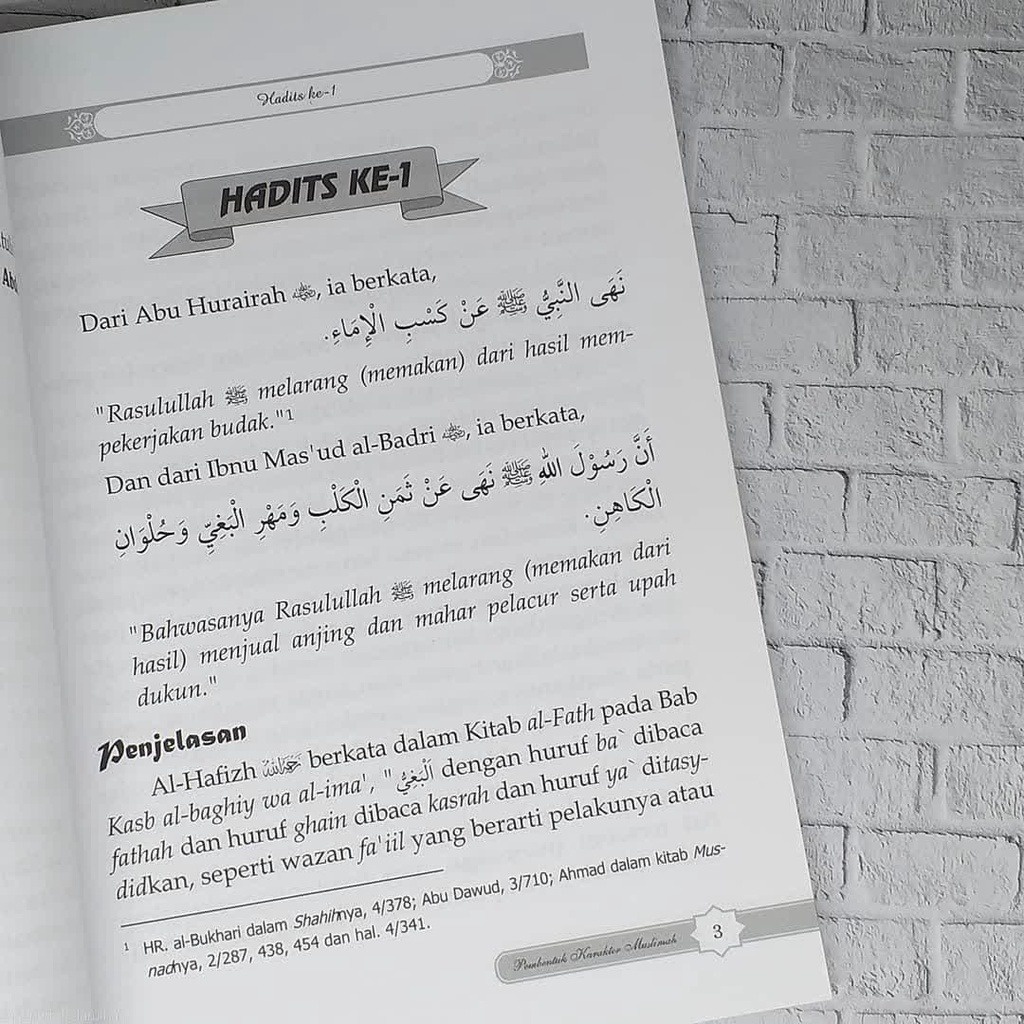 Hadits ke-1
HADITS KE-1
Dari Abu Hurairah ﷺ, ia berkata,
نَهَى النَّبِيُّ ﷺ عَنْ كَسْبِ الْإِمَاءِ.
"Rasulullah ﷺ melarang (memakan) dari hasil mem-
pekerjakan budak."1
Dan dari Ibnu Mas'ud al-Badri, ia berkata,
أَنَّ رَسُوْلَ اللهِ ﷺ نَهَى عَنْ ثَمَنِ الْكَلْبِ وَمَهْرِ الْبَغِيِّ وَحُلْوَانِ
الْكَاهِنِ.
"Bahwasanya Rasulullah ﷺ melarang (memakan dari
hasil) menjual anjing dan mahar pelacur serta upah
dukun."
Penjelasan
Al-Hafizh berkata dalam Kitab al-Fath pada Bab
Kasb al-baghiy wa al-ima', "اَلْبَغِيُّ dengan huruf ba` dibaca
fathah dan huruf ghain dibaca kasrah dan huruf ya` ditasy-
didkan, seperti wazan fa'iil yang berarti pelakunya atau
1 HR. al-Bukhari dalam Shahihnya, 4/378; Abu Dawud, 3/710; Ahmad dalam kitab Mus-
nadnya, 2/287, 438, 454 dan hal. 4/341.
Pembentuk Karakter Muslimah 3